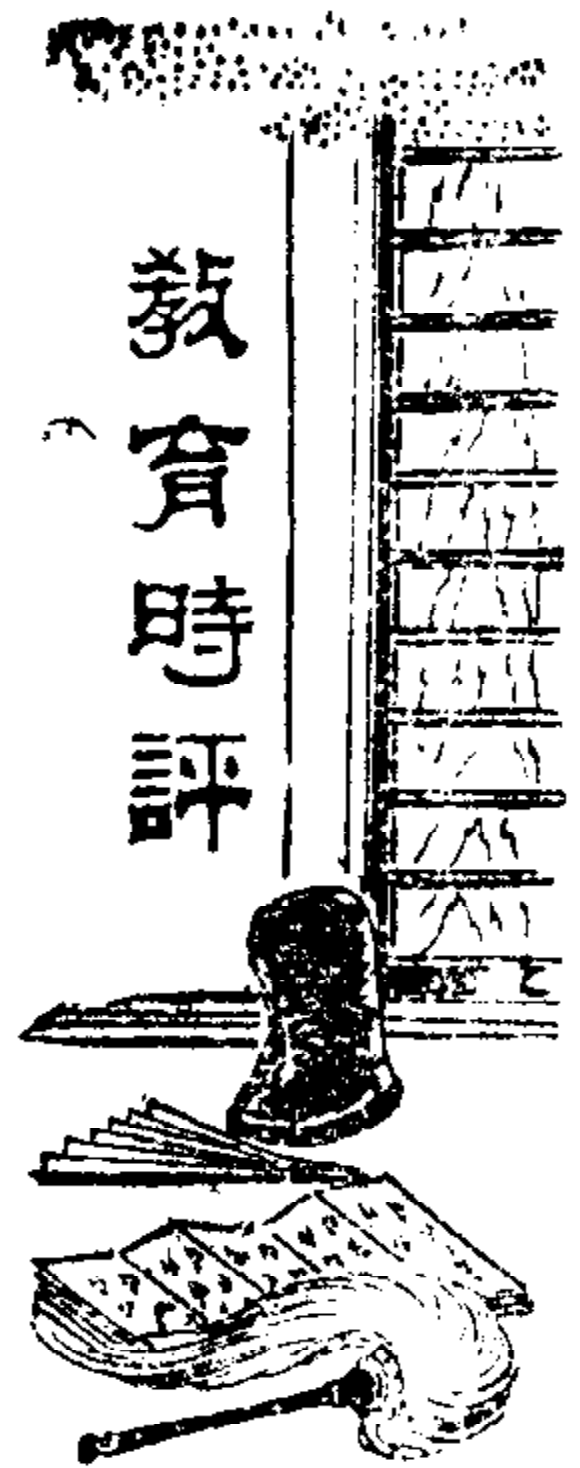 教育時評